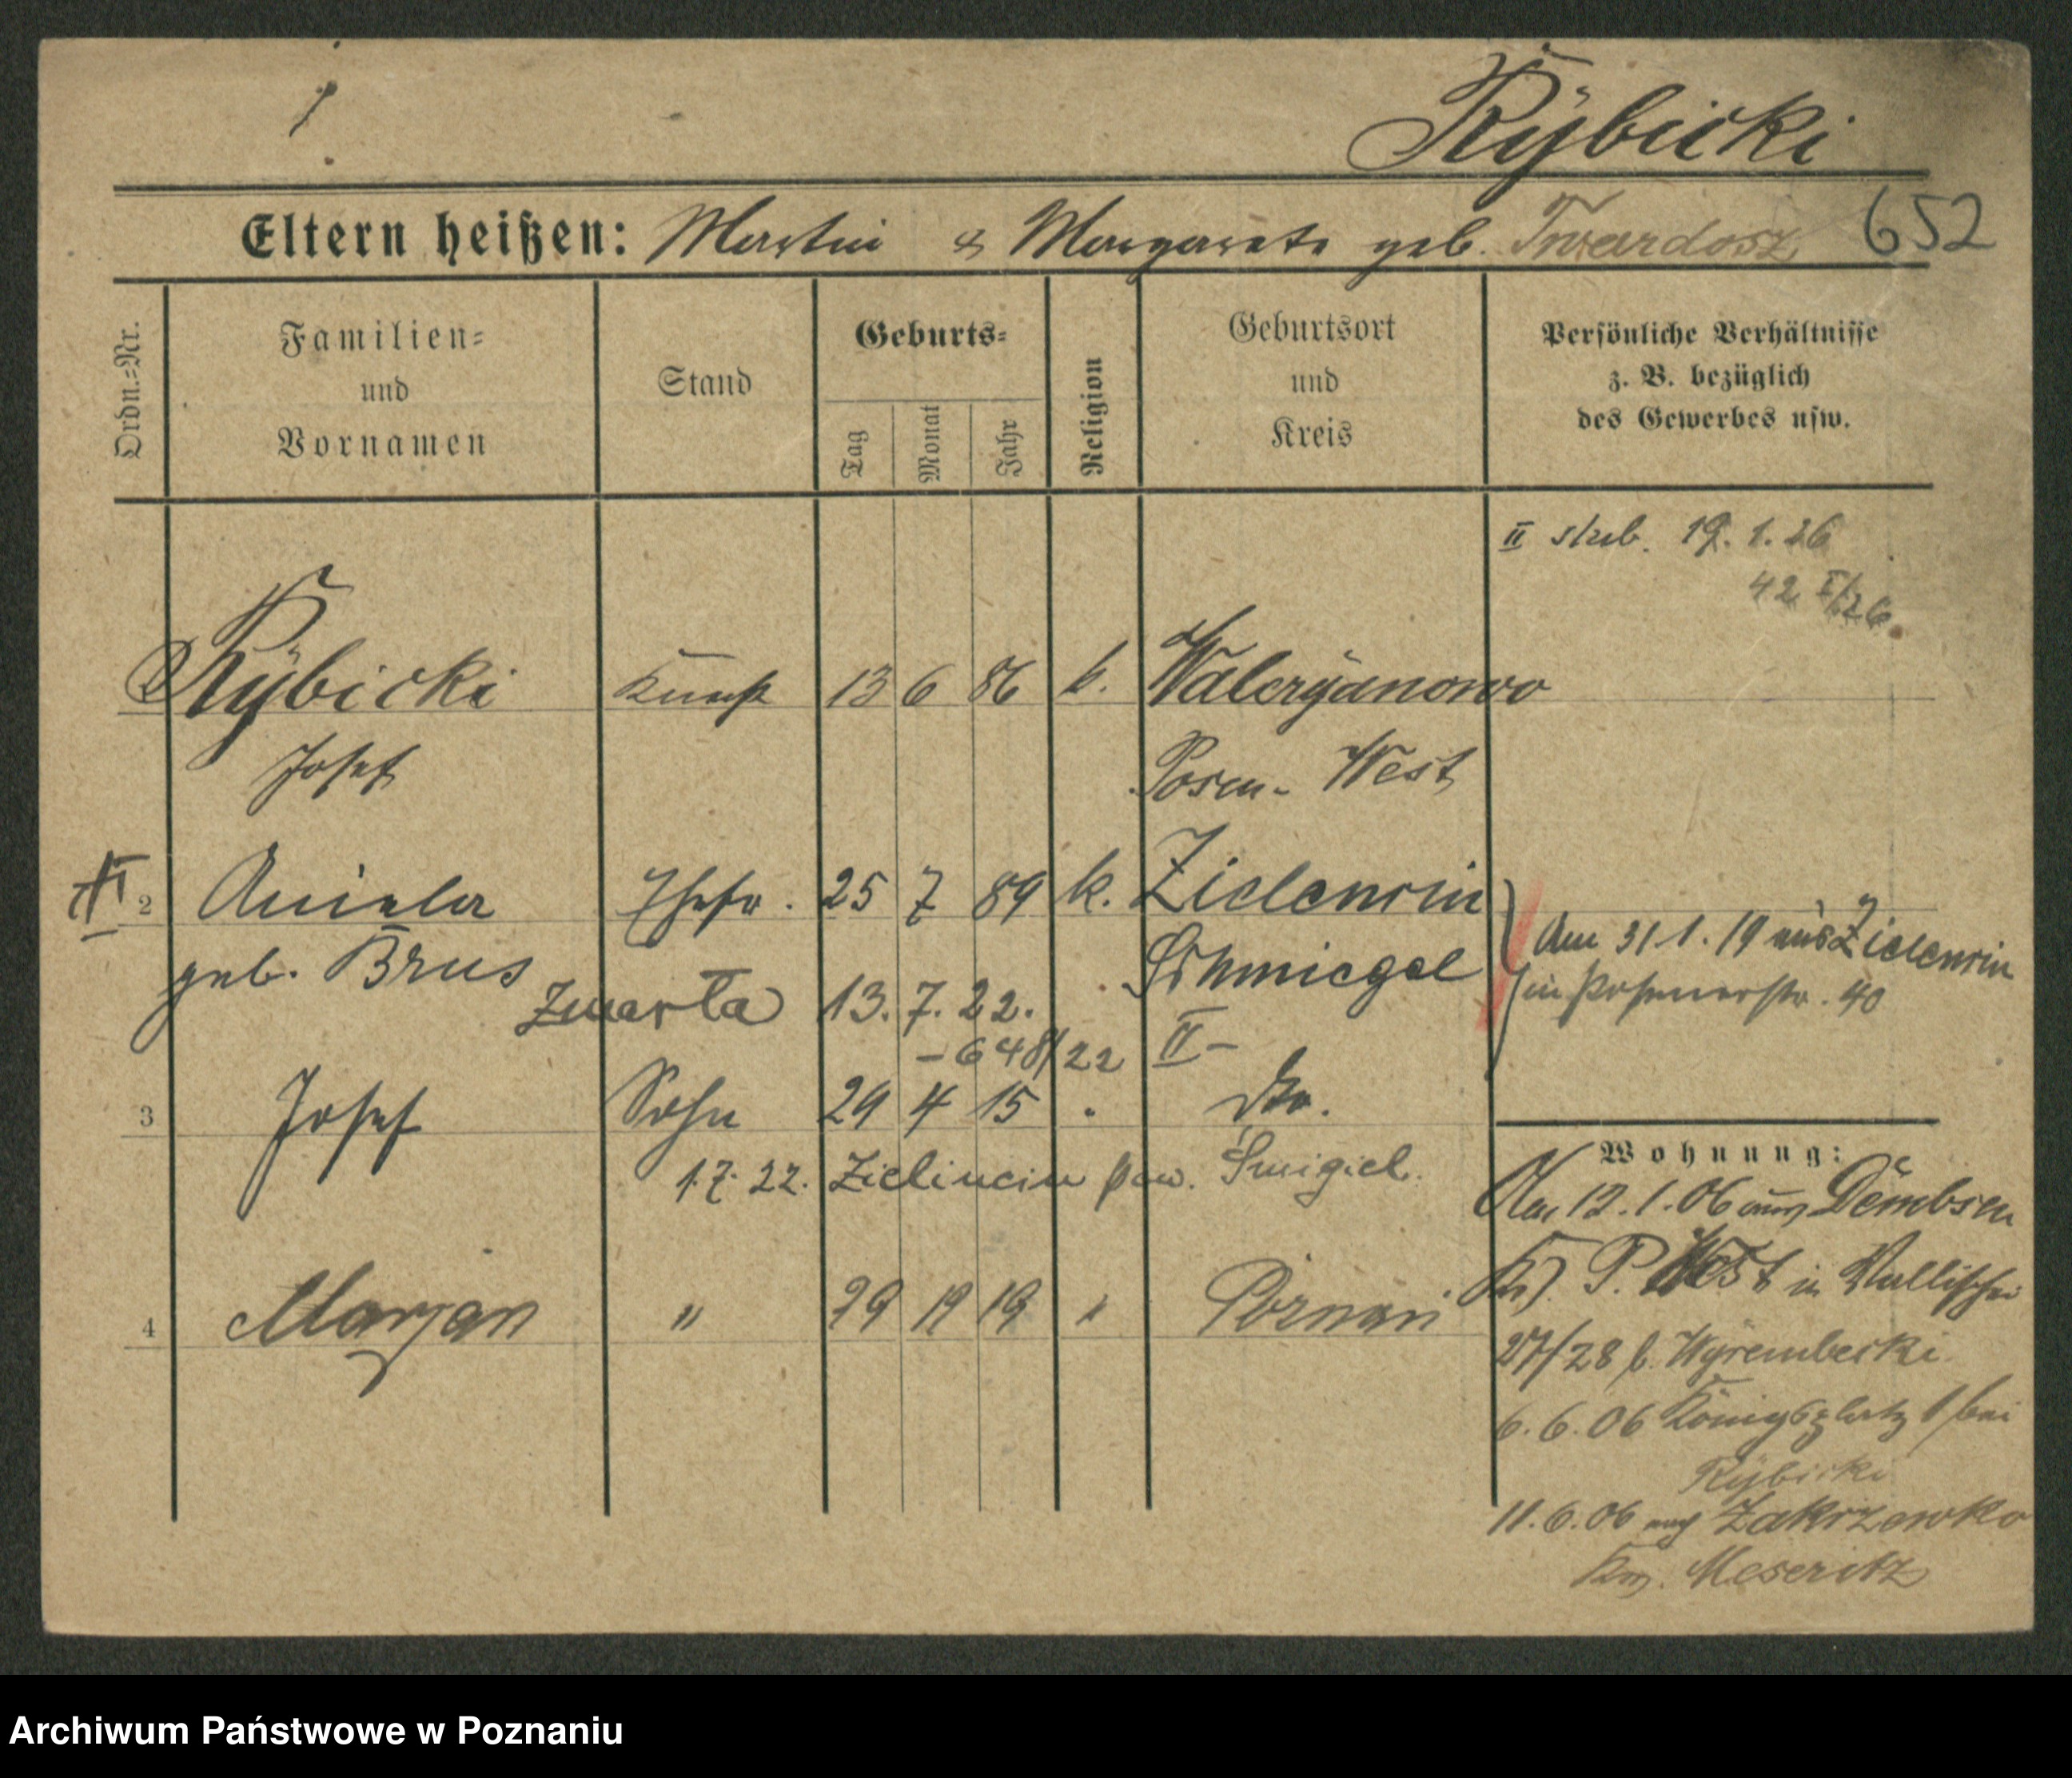 Rÿbicki
652
Eltern heißen: Martin & Margarete geb. Twardosz
Ordn.-Nr.
Familien- und Vornamen
Stand
Geburts-
Tag
Monat
Jahr
Religion
Geburtsort und Kreis
Persönliche Verhältnisse z. B. bezüglich des Gewerbes usw.
II 19.1.26
42 I/26.
Rÿbicki 13 6 86 k. Walerÿanowo
Josef Posen-West
2 Aniela Ehefr. 25 7 89 k. Zielencin
geb. Brus Schmiegel
Am 31.1.19 aus Zielencin
in Posenerstr. 40
Zmarła 13.7.22.
- 648/22 II -
3 Josef Sohn 29 4 15 " Dto.
1.7.22. Zielincin pow. Śmigiel.
4 Marjan " 29 19 "
Wohnung:
Am 12.1.06 aus Dembsen
Krs. P. West in Wallischei
27/28 b. Wÿrembecki
6.6.06 Königsplatz 1 bei
Rÿbicki
11.6.06 nach Zakrzewko
Krs. Meseritz
Archiwum Państwowe w Poznaniu